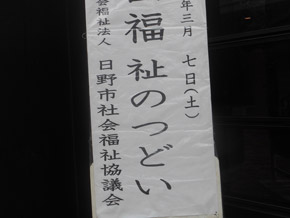 年三月 七日(土)
福祉のつどい
会福祉法人 日野市社会福祉協議会